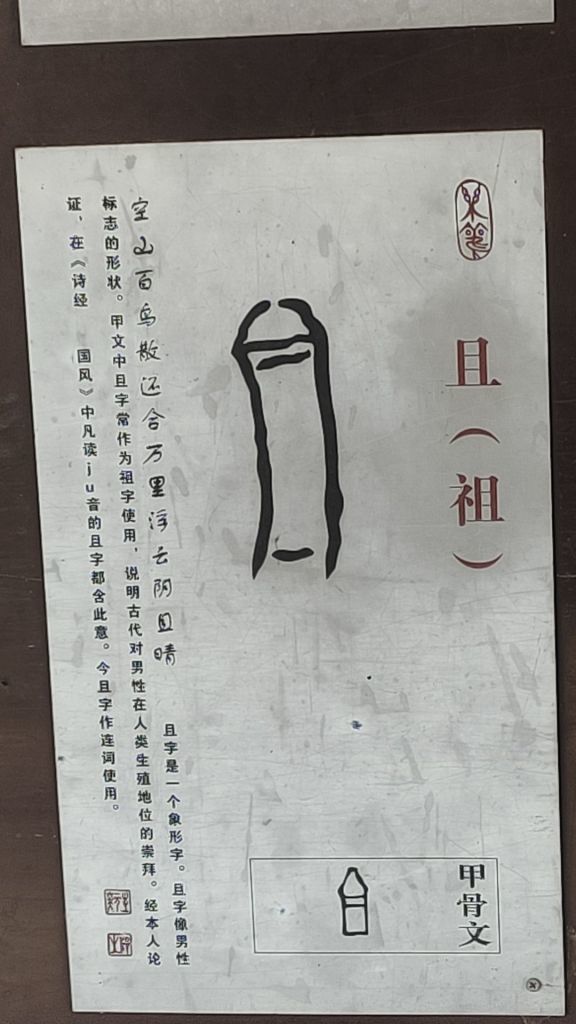 且（祖）
甲骨文
且字是一个象形字。且字像男性
空山百鸟散还合万里浮云阴且晴
标志的形状。甲文中且字常作为祖字使用，说明古代对男性在人类生殖地位的崇拜。经本人论
证，在《诗经 国风》中凡读ju音的且字都含此意。今且字作连词使用。